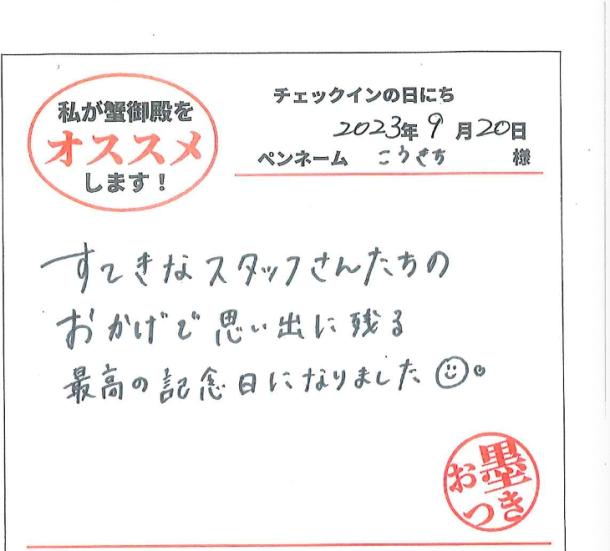 私が蟹御殿を
オススメ
します！
チェックインの日にち
2023年 9月20日
ペンネーム こうきち 様
すてきなスタッフさんたちの
おかげで思い出に残る
最高の記念日になりました☺。
お墨つき